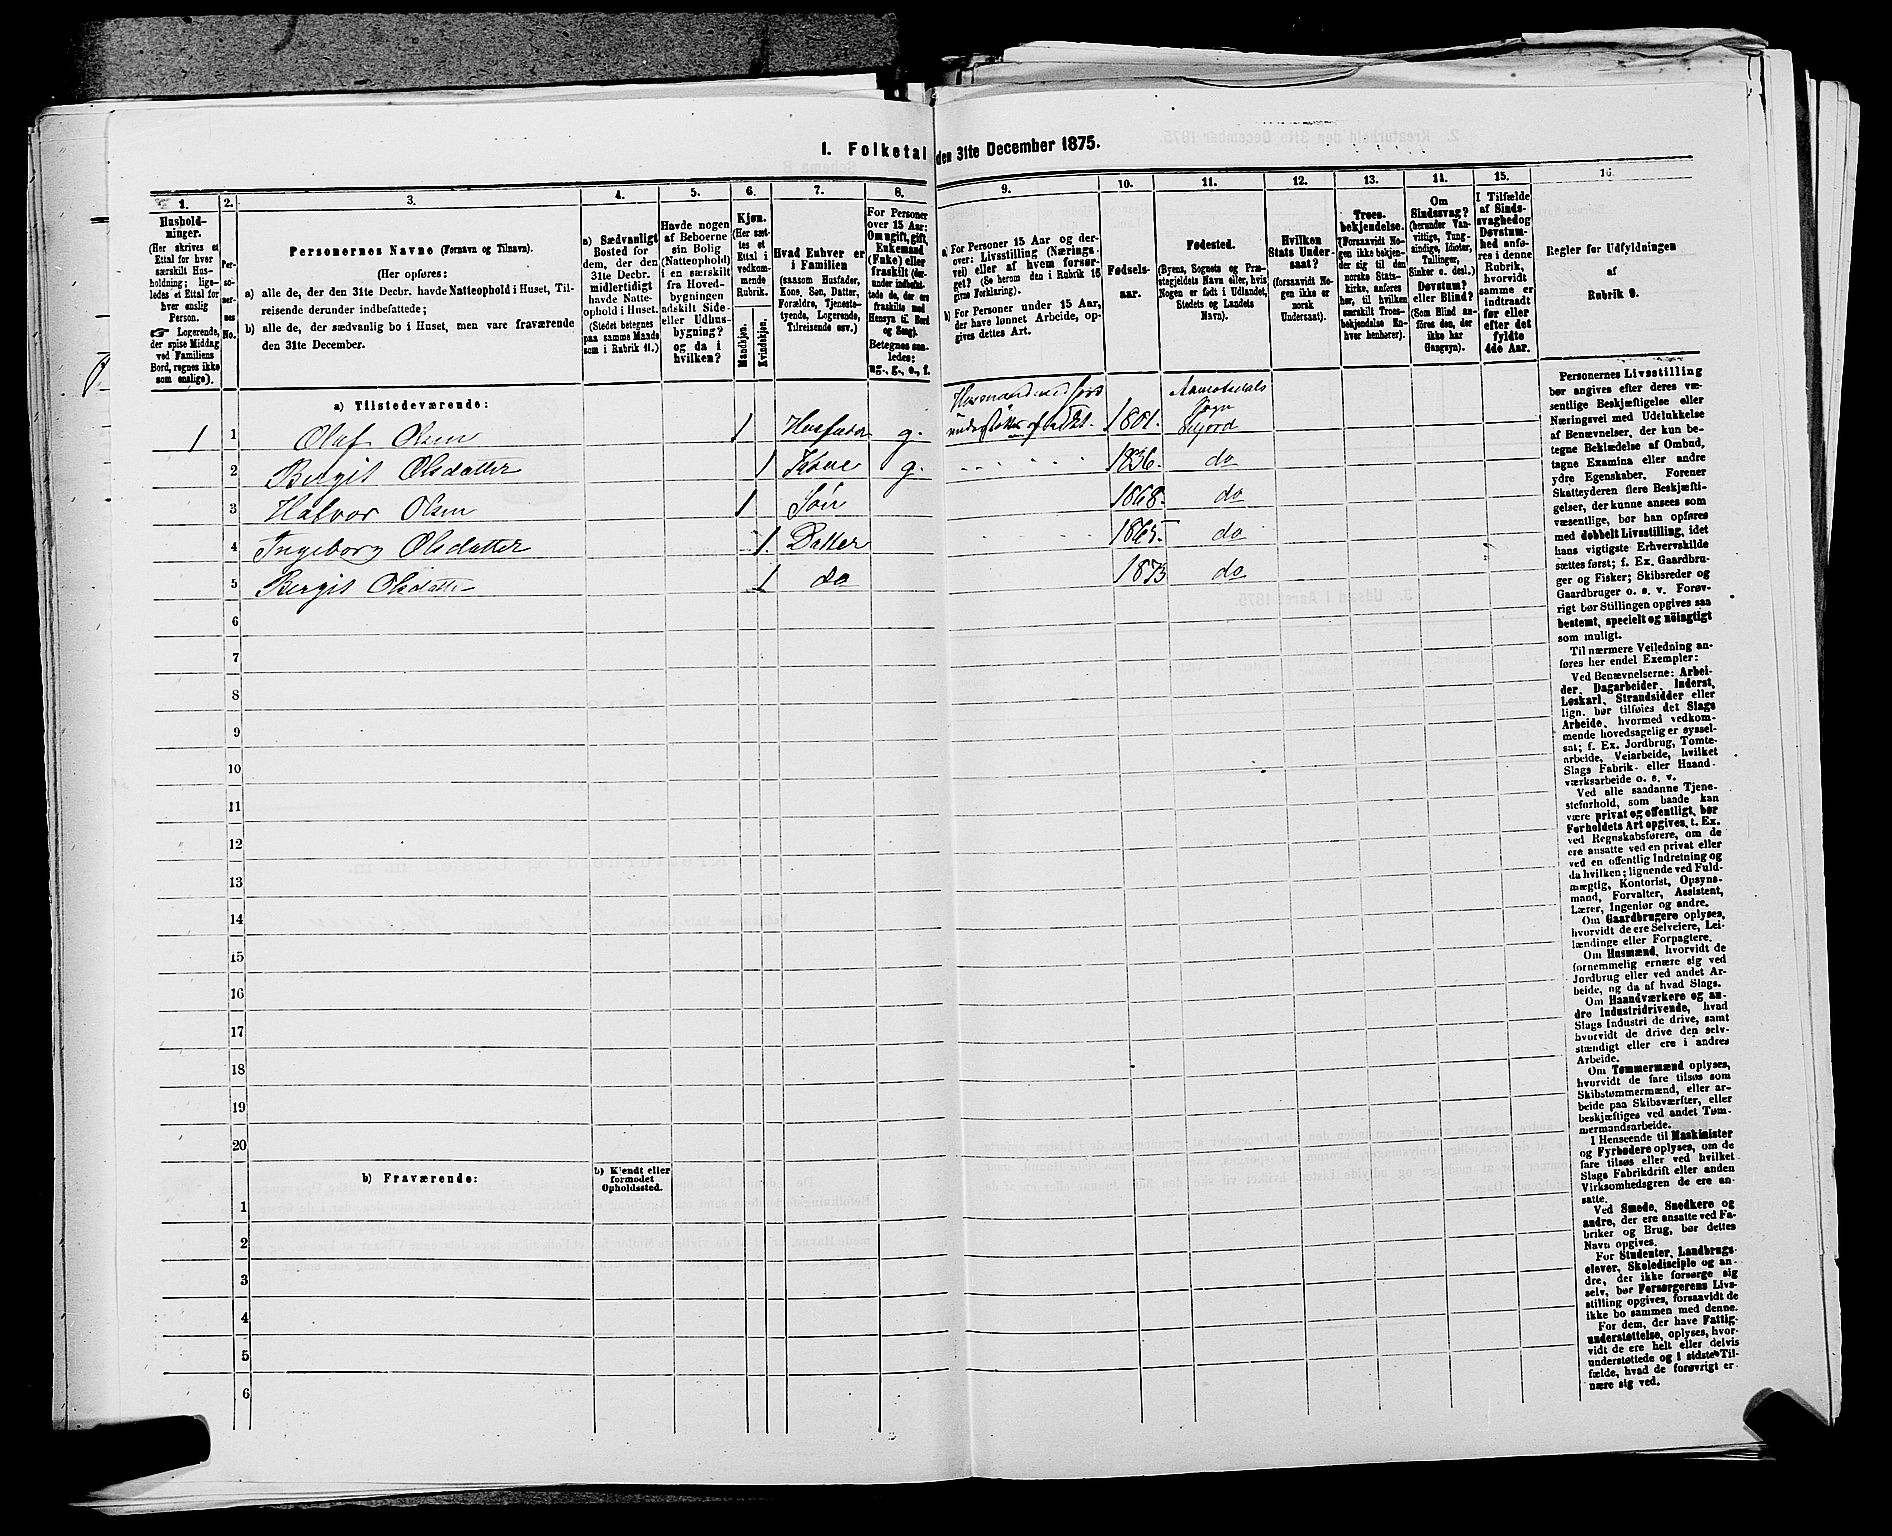 1. Folketal den 31te December 1875.
1.
2.
3.
4.
5.
6.
7.
8.
9.
10.
11.
12.
13.
14.
15.
16.
Hushold-
ninger.
(Her skrives et
Ettal for hver
særskilt Hus-
holdning; lige-
ledes et Ettal for
hver enslig
Person.
☞ Logerende,
der spise Middag
ved Familiens
Bord, regnes ikke
som enslige).
Per-
so-
ner-
nes
No.
Personernes Navne (Fornavn og Tilnavn).
(Her opføres:
a) alle de, der den 31te Decbr. havde Natteophold i Huset, Til-
reisende derunder indbefattede;
b) alle de, der sædvanlig bo i Huset, men vare fraværende
den 31te December.
a) Sædvanligt
Bosted for
dem, der den
31te Decbr.
midlertidigt
havde Natte-
ophold i Huset.
(Stedet betegnes
paa samme Maade
som i Rubrik 11.)
Havde nogen
af Beboerne
sin Bolig
(Natteophold)
i en særskilt
fra Hoved-
bygningen
adskilt Side-
eller Udhus-
bygning?
og da i
hvilken?
Kjøn.
(Her sæt-
tes et
Ettal i
vedkom-
mende
Rubrik.
Mandkjøn.
Kvindekjøn.
Hvad Enhver er
i Familien
(saasom Husfader,
Kone, Søn, Datter,
Forældre, Tjeneste-
tyende, Logerende,
Tilreisende osv.)
For Personer
over 15 Aar:
Om ugift, gift,
Enkemand
(Enke) eller
fraskilt (der-
under indbefat-
tede de, der ere
fraskilte med
Hensyn til Bord
og Seng).
Betegnes saa-
ledes:
ug., g., e., f.
a) For Personer 15 Aar og der-
over: Livsstilling (Nærings-
vei) eller af hvem forsør-
get? (Se herom den i Rubrik 16
givne Forklaring).
b) For Personer under 15 Aar,
der have lønnet Arbeide, op-
gives dettes Art.
Fødsels-
aar.
Fødested.
(Byens, Sognets og Præ-
stegjeldets Navn eller, hvis
Nogen er født i Udlandet,
Stedets og Landets
Navn).
Hvilken
Stats Under-
saat?
(forsaavidt No-
gen ikke er
norsk
Undersaat).
Troes-
bekjendelse.
(Forsaavidt No-
gen ikke bekjen-
der sig til den
norske Stats-
kirke, anføres
her, til hvilken
særskilt Troes-
bekjendelse En-
hver henhører).
Om
Sindssvag?
(herunder Van-
vittige, Tung-
sindige, Idioter,
Tullinger,
Sinker o. desl.)
Døvstum?
eller Blind?
(Som Blind an-
føres den, der
ikke har
Gangsyn).
I Tilfælde
af Sinds-
svaghed og
Døvstum-
hed anfø-
res i denne
Rubrik,
hvorvidt
samme er
indtraadt
før eller
efter det
fyldte
4de Aar.
Regler for Udfyldningen
af
Rubrik 9.
a) Tilstedeværende:
1 1 Olaf Olsen 1 Husfader g. Husmand med Jord understøttes af 1801. Aamotsdals Sogn Seljord
2 Bergit Olsdatter 1 Kone g. 1836. do
3 Halvor Olsen 1 Søn 1868. do
4 Ingeborg Olsdatter 1. Datter 1865. do
5 Bergit Olsdatter 1 do 1873 do
6
7
8
9
10
11
12
13
14
15
16
17
18
19
20
b) Fraværende:
b) Kjendt eller
formodet
Opholdssted.
1
2
3
4
5
6
Personernes Livsstilling
bør angives efter deres væ-
sentlige Beskjæftigelse eller
Næringsvei med Udelukkelse
af Benævnelser, der kun be-
tegne Beklædelse af Ombud,
tagne Examina eller andre
ydre Egenskaber. Forener
Skatteyderen flere Beskjæfti-
gelser, der kunne ansees som
væsentlige, bør han opføres
med dobbelt Livsstilling, idet
hans vigtigste Erhvervskilde
sættes først; f. Ex. Gaardbru-
ger og Fisker; Skibsreder og
Gaardbruger o. s. v. Forøv-
rigt bør Stillingen opgives saa
bestemt, specielt og nöiagtigt
som muligt.
Til nærmere Veiledning an-
føres her endel Exempler:
Ved Benævnelserne: Arbei-
der, Dagarbeider, Inderst,
Løskarl, Strandsidder eller
lign. bør tilføies det Slags
Arbeide, hvormed vedkom-
mende hovedsagelig er syssel-
sat; f. Ex. Jordbrug, Tomte-
arbeide, Veiarbeide, hvilket
Slags Fabrik- eller Haand-
værksarbeide o. s. v.
Ved alle saadanne Tjene-
steforhold, som baade kan
være privat og offentligt, bør
Forholdets Art opgives, t. Ex.
ved Regnskabsførere, om de
ere ansatte ved en privat eller
ved en offentlig Indretning og
da hvilken; lignende ved Fuld-
mægtig, Kontorist, Opsyns-
mand, Forvalter, Assistent,
Lærer, Ingeniør og andre.
Om Gaardbrugere oplyses,
hvorvidt de ere Selveiere, Lei-
lændinge eller Forpagtere.
Om Husmænd, hvorvidt de
fornemmelig ernære sig ved
Jordbrug eller ved andet Ar-
beide, og da af hvad Slags.
Om Haandværkere og an-
dre Industridrivende, hvad
Slags Industri de drive, samt
hvorvidt de drive den selv-
stændigt eller ere i andres
Arbeide.
Om Tømmermænd oplyses,
hvorvidt de fare tilsøs som
Skibstømmermænd, eller ar-
beide paa Skibsværfter, eller
beskjæftiges ved andet Tøm-
mermandsarbeide.
I Henseende til Maskinister
og Fyrbødere oplyses, om de
fare tilsøs eller ved hvilket
Slags Fabrikdrift eller anden
Virksomhedsgren de ere an-
satte.
Ved Smede, Snedkere og
andre, der ere ansatte ved Fa-
briker og Brug, bør dettes
Navn opgives.
For Studenter, Landbrugs-
elever, Skoledisciple og an-
dre, der ikke forsørge sig
selv, bør Forsørgerens Livs-
stilling opgives, forsaavidt de
ikke bo sammen med denne.
For dem, der have Fattig-
understøttelse, oplyses, hvor-
vidt de ere helt eller delvis
understøttede og i sidste Til-
fælde, hvad de forøvrigt er-
nære sig ved.